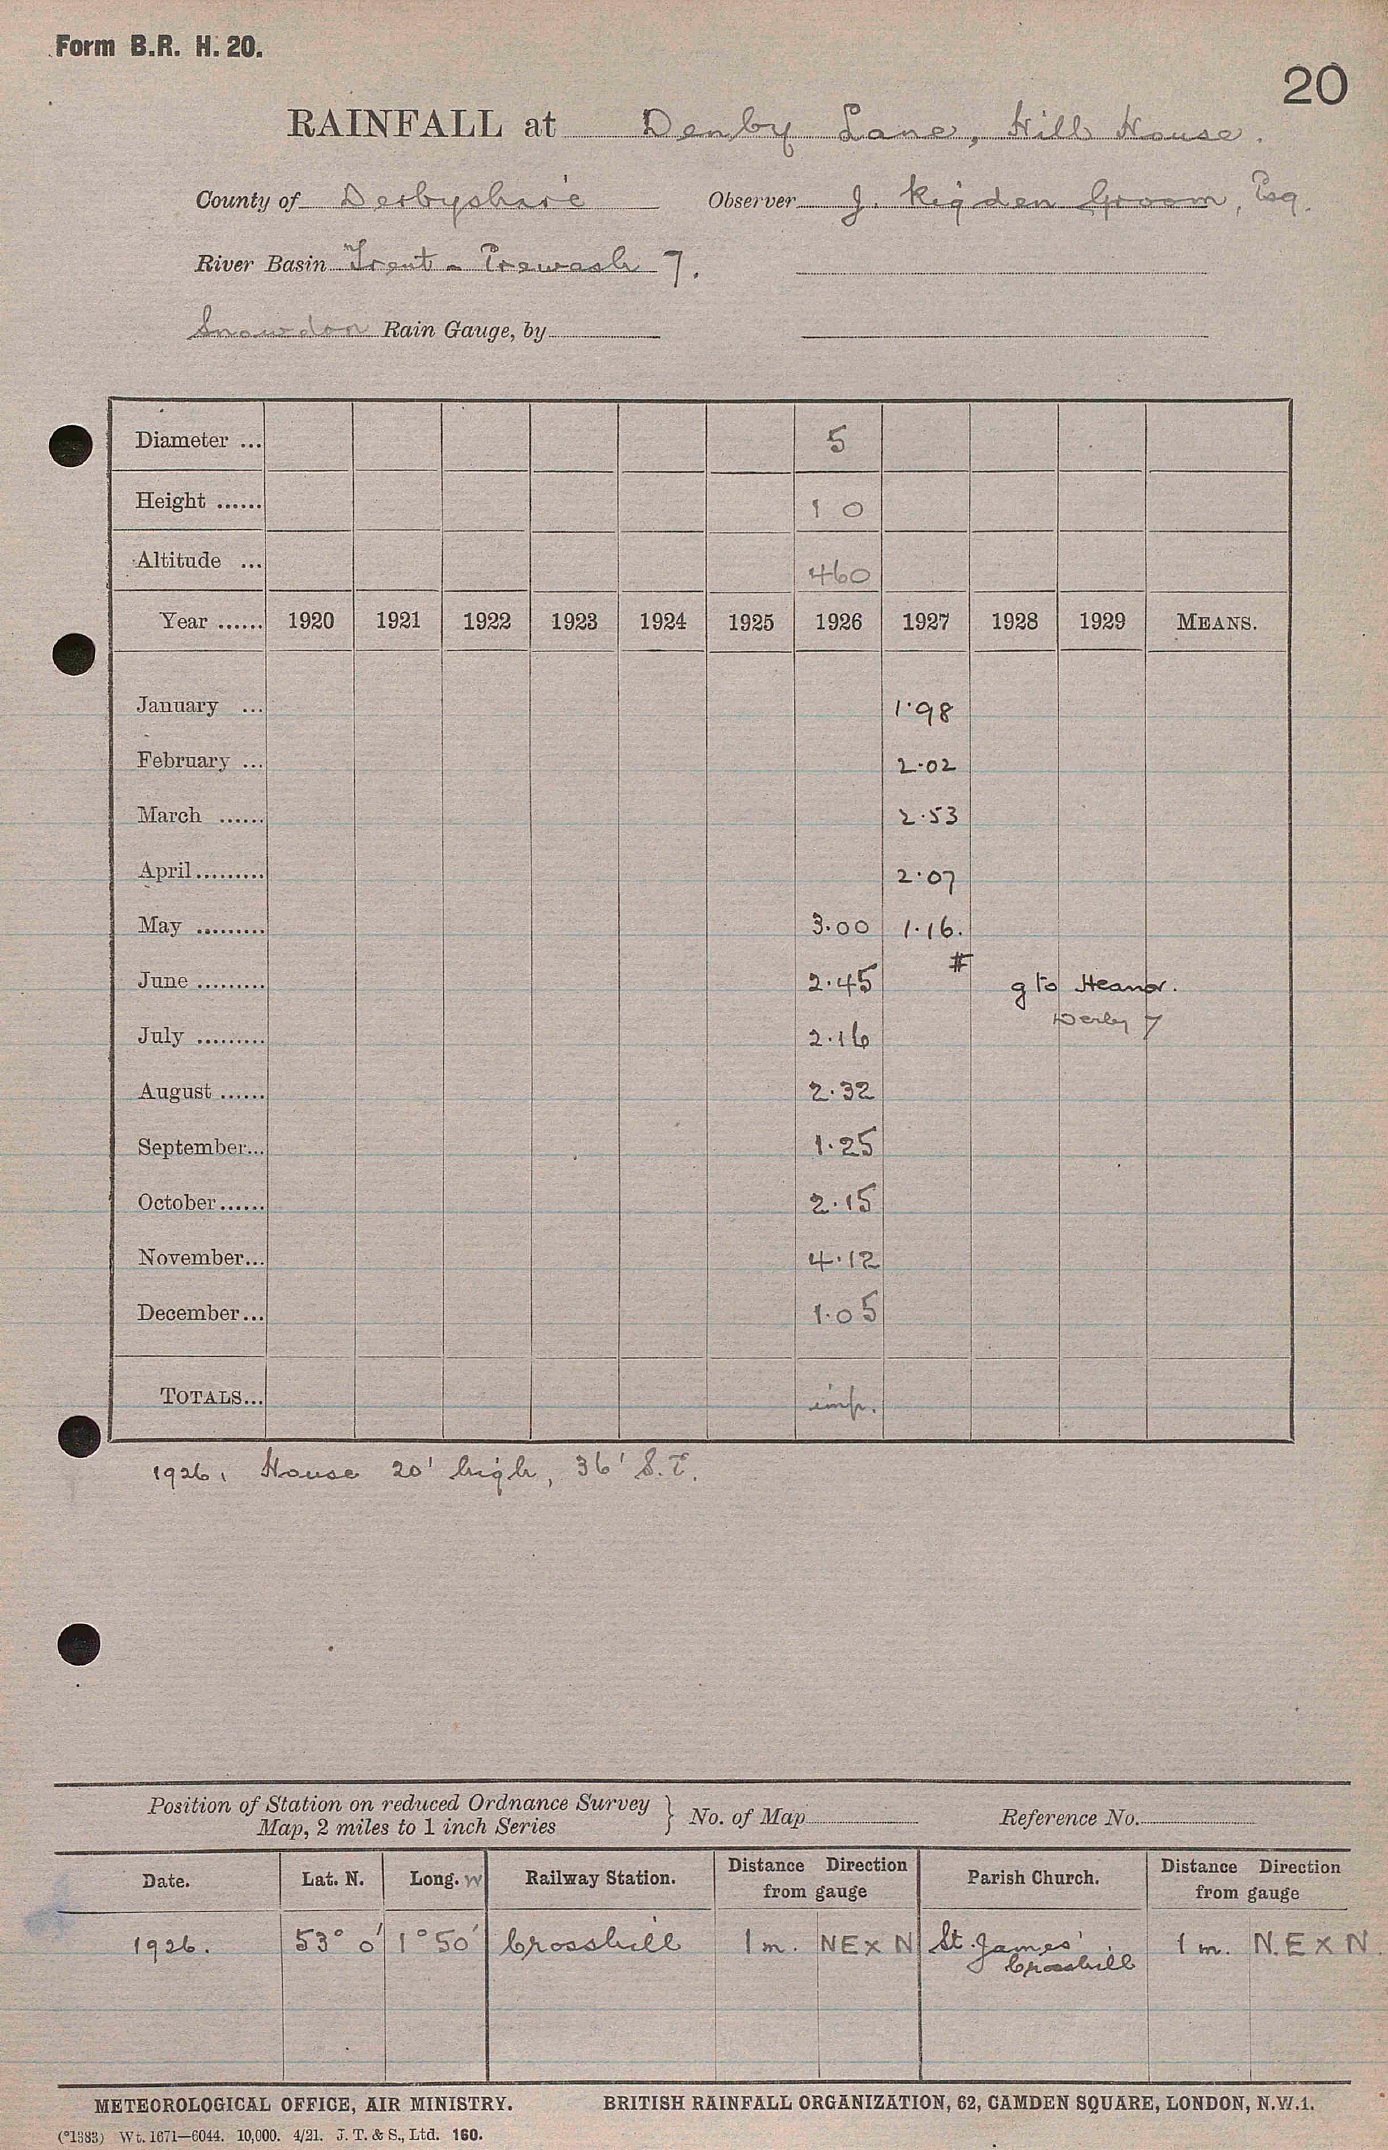 Form B.R. H. 20.
20
RAINFALL at Denby Lane, Hill House.
County of Derbyshire Observer J. Rigden Groom, Esq.
River Basin Trent - Erewash 7.
Snowdon Rain Gauge, by
Diameter ... 5
Height ...... 1 0
Altitude ... 460
Year ...... 1920 1921 1922 1923 1924 1925 1926 1927 1928 1929 MEANS.
January ... 1.98
February ... 2.02
March ...... 2.53
April ......... 2.07
May ......... 3.00 1.16.
#
June ......... 2.45 g to Heanor.
Derby 7
July ......... 2.16
August ...... 2.32
September... 1.25
October ...... 2.15
November... 4.12
December... 1.05
TOTALS... imp.
1926. House 20' high, 36' S.E.
Position of Station on reduced Ordnance Survey
Map, 2 miles to 1 inch Series } No. of Map Reference No.
Date. Lat. N. Long. W Railway Station. Distance Direction from gauge Parish Church. Distance Direction from gauge
1926. 53° 0' 1° 50' Crosshill 1 m. NE x N St. James' Crosshill 1 m. N.E x N
METEOROLOGICAL OFFICE, AIR MINISTRY. BRITISH RAINFALL ORGANIZATION, 62, CAMDEN SQUARE, LONDON, N.W.1.
(*1383) Wt. 1671—6044. 10,000. 4/21. J. T. & S., Ltd. 160.